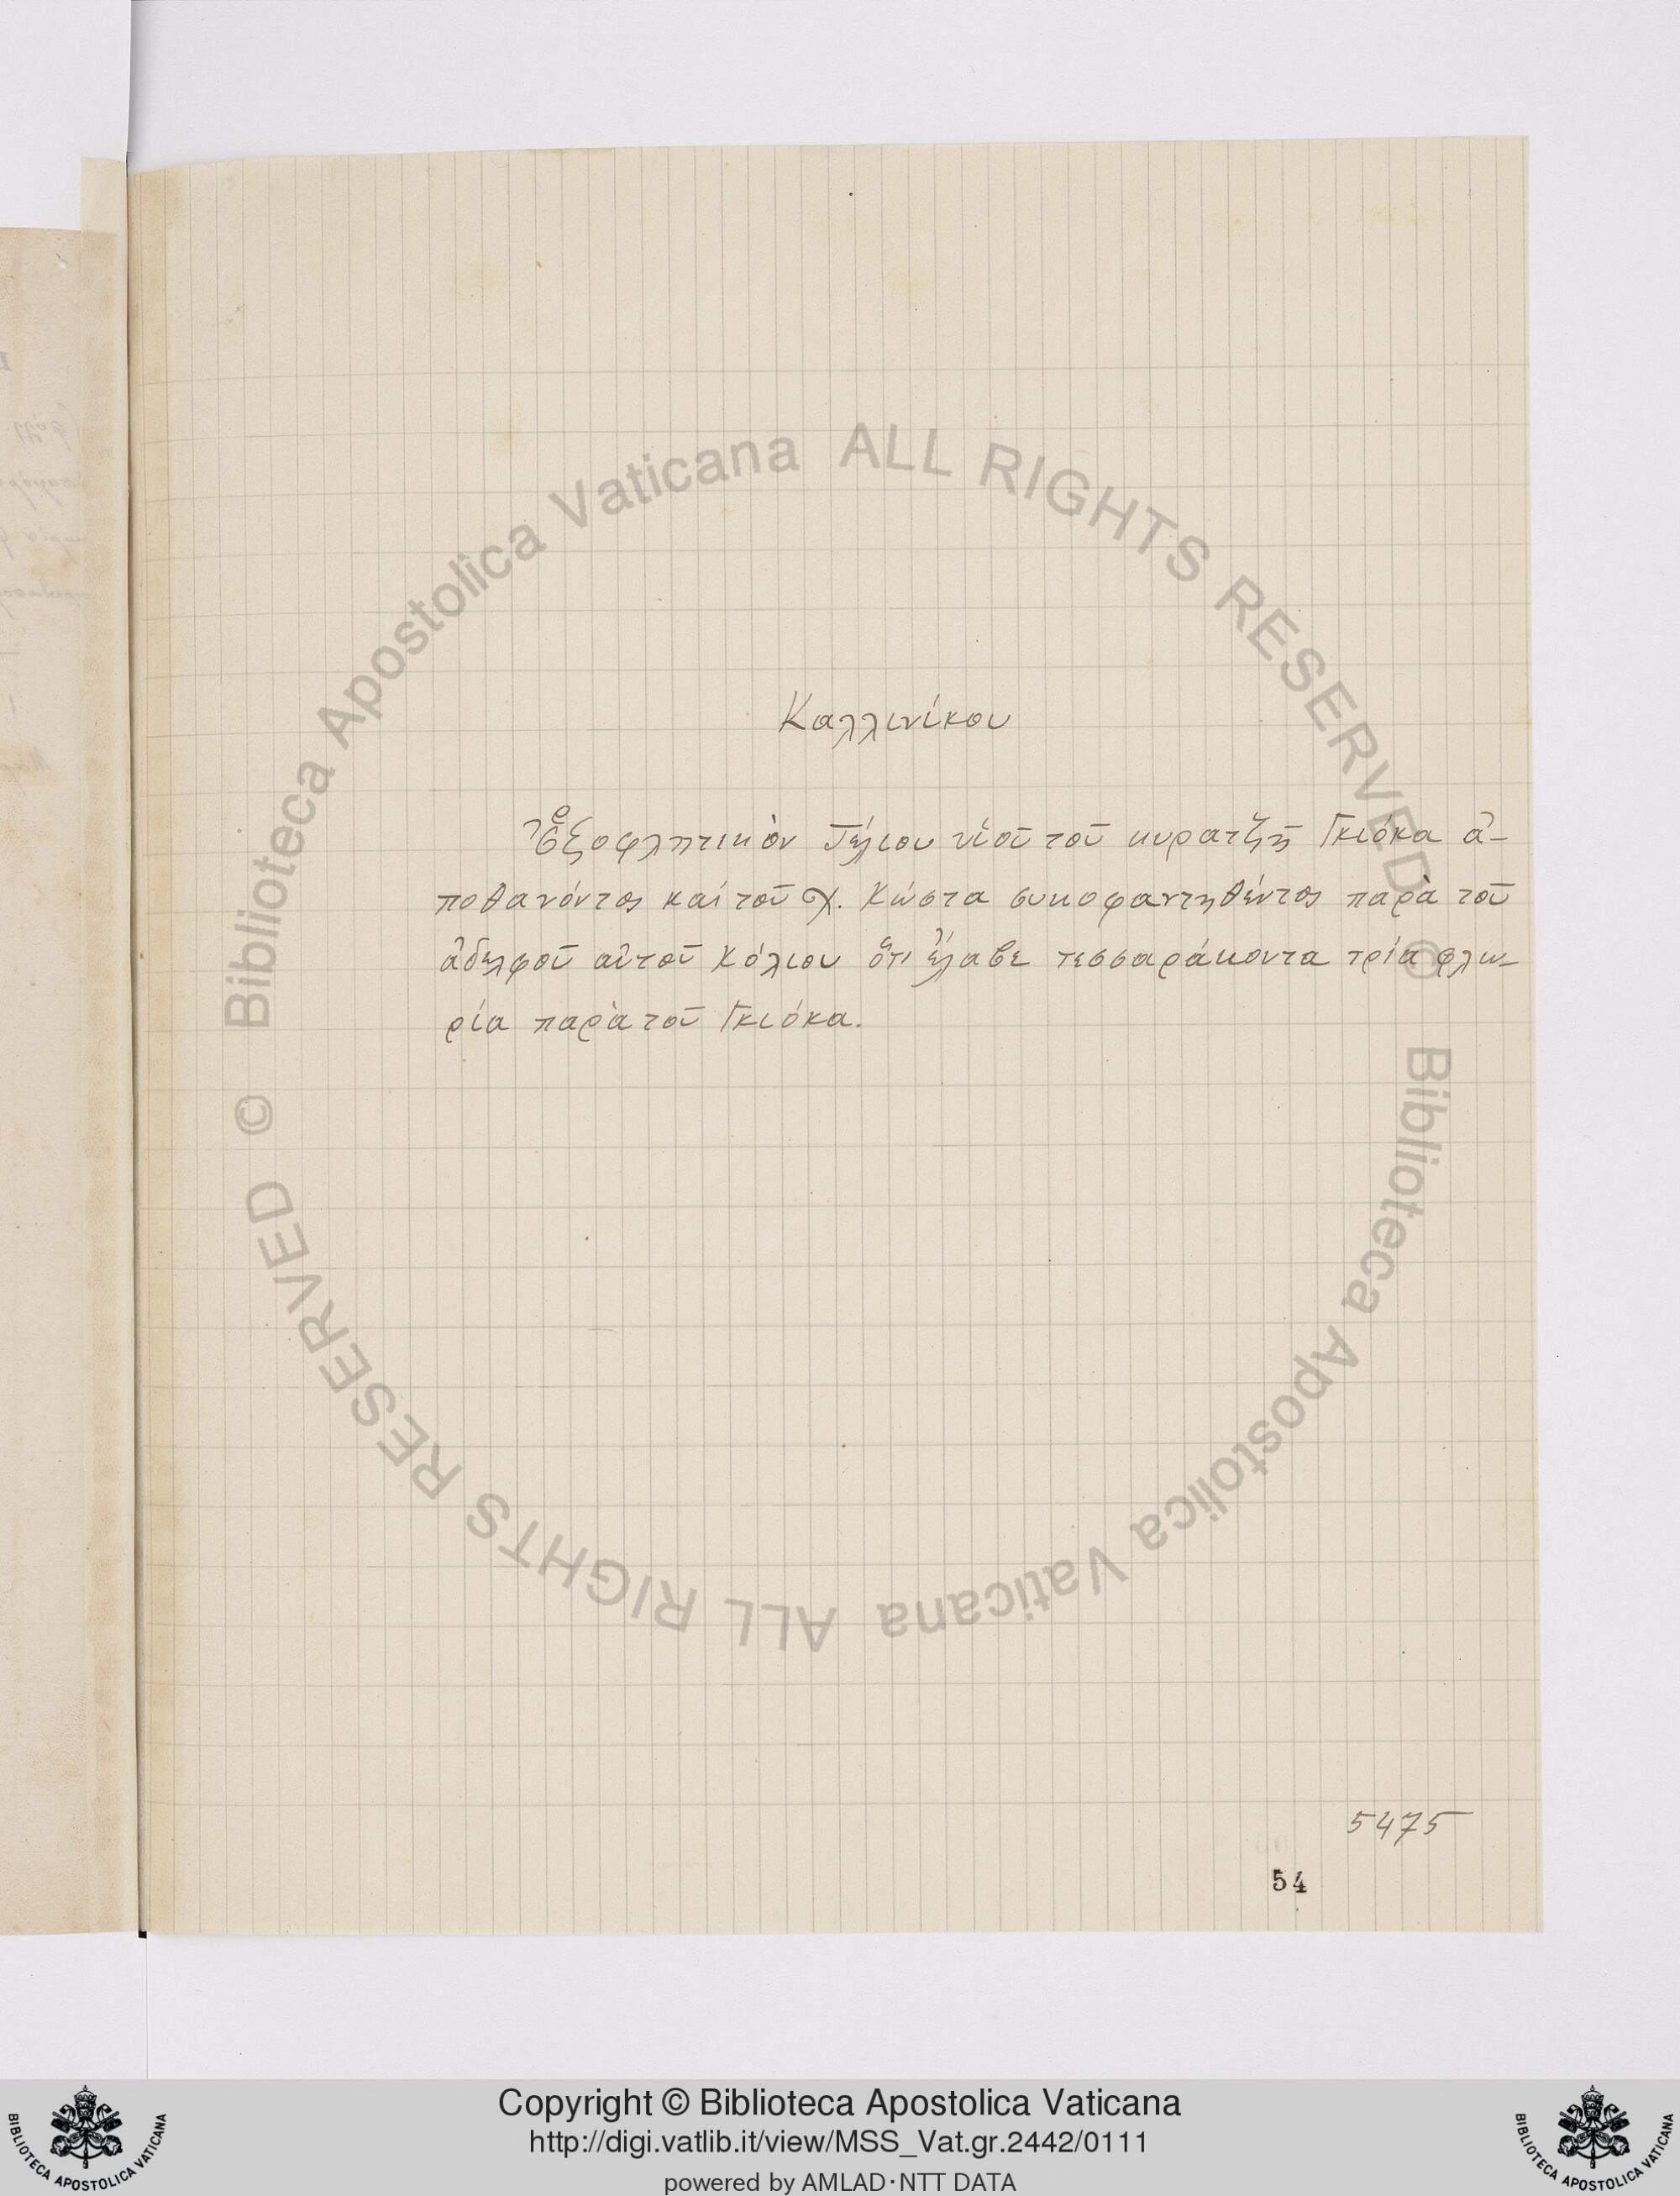 Καλλινίκου
Ἐξοφλητικὸν Γέλιου υἱοῦ τοῦ κυρατζῆ Γκιόκα ἀ-
ποθανόντος καὶ τοῦ χ. Κώστα συκοφαντηθέντος παρὰ τοῦ
ἀδελφοῦ αὐτοῦ Κόλιου ὅτι ἔλαβε τεσσαράκοντα τρία φλω-
ρία παρὰ τοῦ Γκιόκα.
5475
54
© Biblioteca Apostolica Vaticana ALL RIGHTS RESERVED
© Biblioteca Apostolica Vaticana ALL RIGHTS RESERVED
Copyright © Biblioteca Apostolica Vaticana
http://digi.vatlib.it/view/MSS_Vat.gr.2442/0111
powered by AMLAD·NTT DATA
BIBLIOTECA APOSTOLICA VATICANA
BIBLIOTECA APOSTOLICA VATICANA